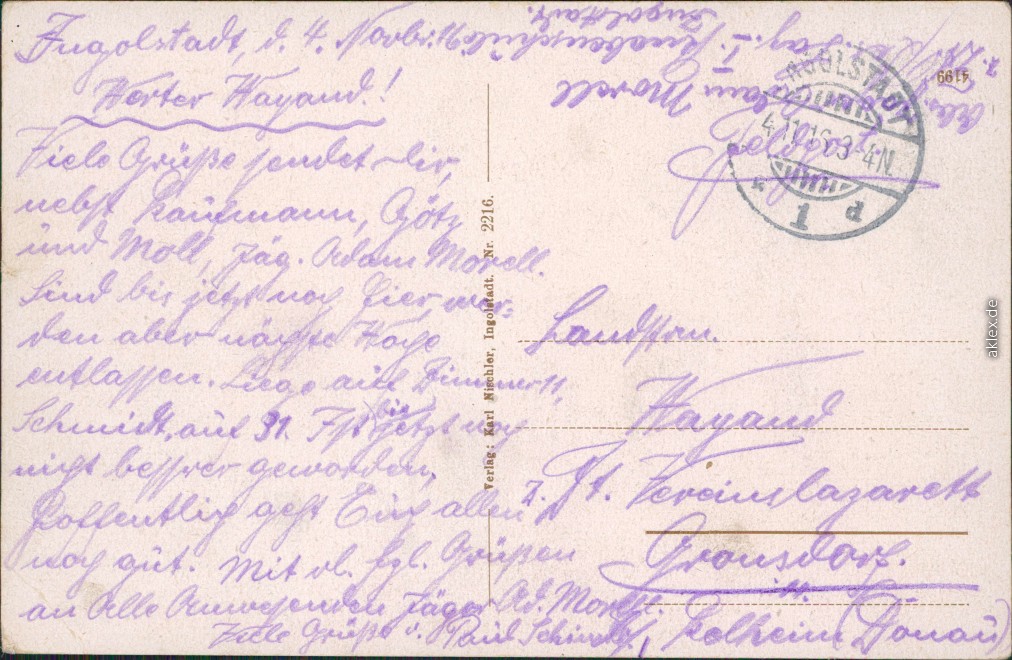 Ingolstadt, d. 4. Novbr. 16
Werter Wayand!
Viele Grüße sendet dir,
nebst Kaufmann, Götz
und Moll, Jäg. Adam Morell.
Sind bis jetzt noch hier, wer-
den aber nächste Woche
entlassen. Liege auf Zimmer 11,
Schmidt, auf 31. Ist bis jetzt noch
nicht besser geworden.
Hoffentlich geht Euch allen
noch gut. Mit vl. hzl. Grüßen
an Alle Anwesenden Jäger Ad. Morell.
Viele Grüße v. Paul Schmidt
Verlag: Karl Nischler, Ingolstadt. Nr. 2216.
Feldpost
Adam Morell
Ingolstadt.
4199
INGOLSTADT
4.11.16.3-4N.
1 d
Landstrm.
Wayand
z. Zt. Vereinslazarett
Gronsdorf.
Kelheim (Donau)
aklex.de